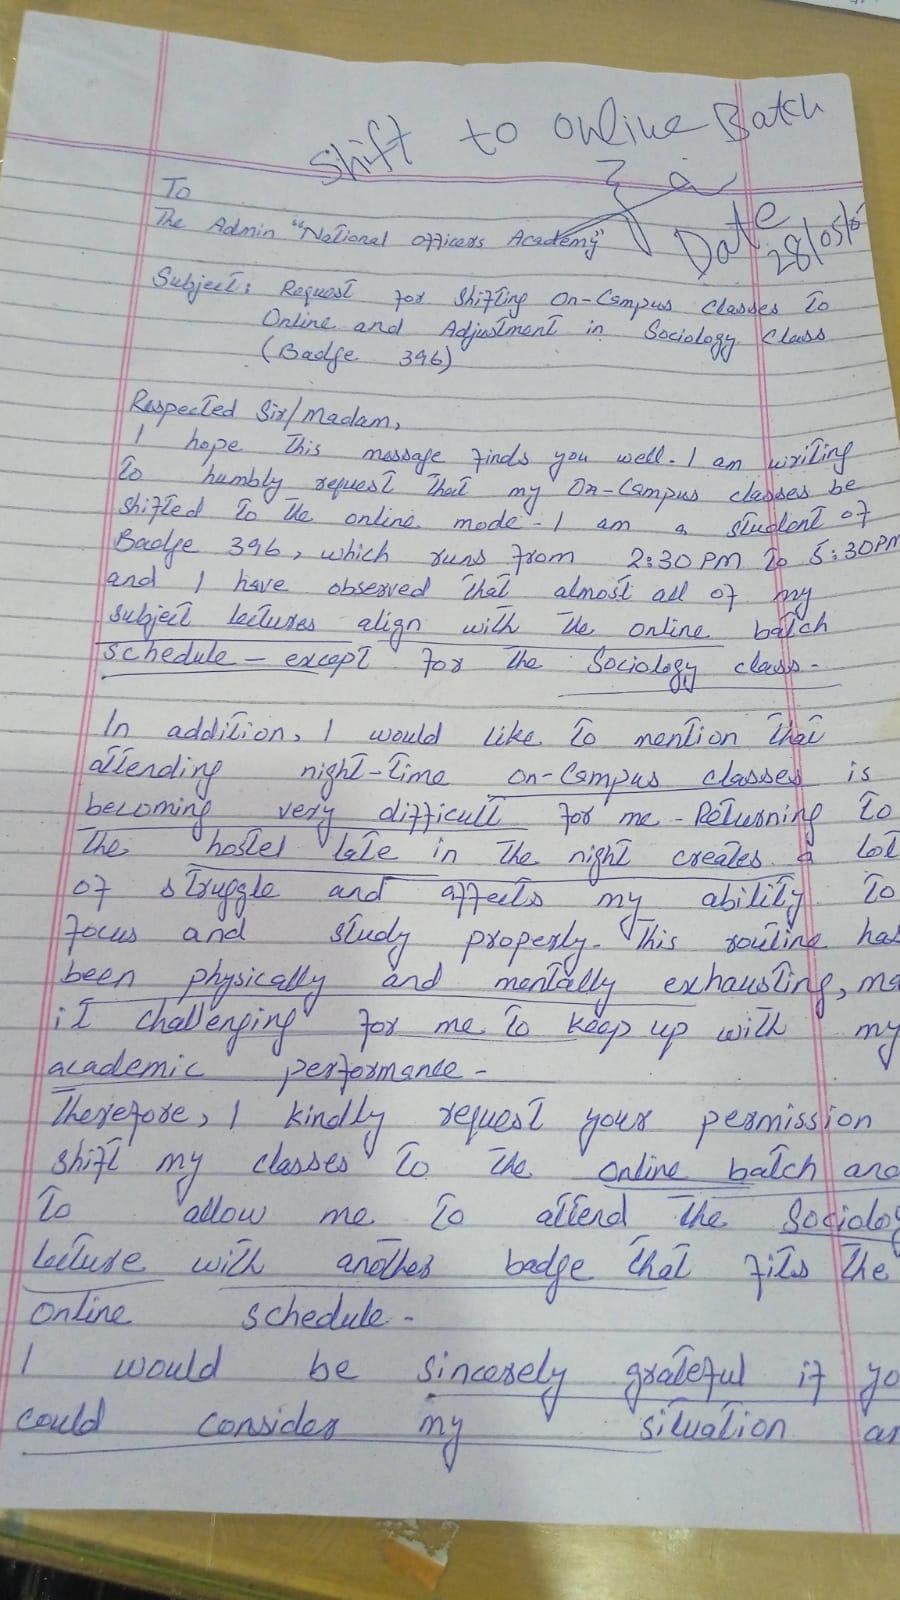 Shift to Online Batch
To
The Admin "National Officers Academy"
Date
28/05/
Subject: Request for Shifting On-Campus Classes to
Online and Adjustment in Sociology Class
(Badge 396)
Respected Sir/Madam,
I hope this message finds you well. I am writing
to humbly request that my On-Campus classes be
shifted to the online mode. I am a student of
Badge 396, which runs from 2:30 PM to 5:30 PM
and I have observed that almost all of my
subject lectures align with the online batch
schedule - except for the Sociology class.
In addition, I would like to mention that
attending night-time on-Campus classes is
becoming very difficult for me. Returning to
the hostel late in the night creates a lot
of struggle and affects my ability to
focus and study properly. This routine has
been physically and mentally exhausting, ma
it challenging for me to keep up with my
academic performance.
Therefore, I kindly request your permission
shift my classes to the online batch and
to allow me to attend the Sociolog
lecture with another badge that fits the
online schedule.
I would be sincerely grateful if yo
could consider my situation an